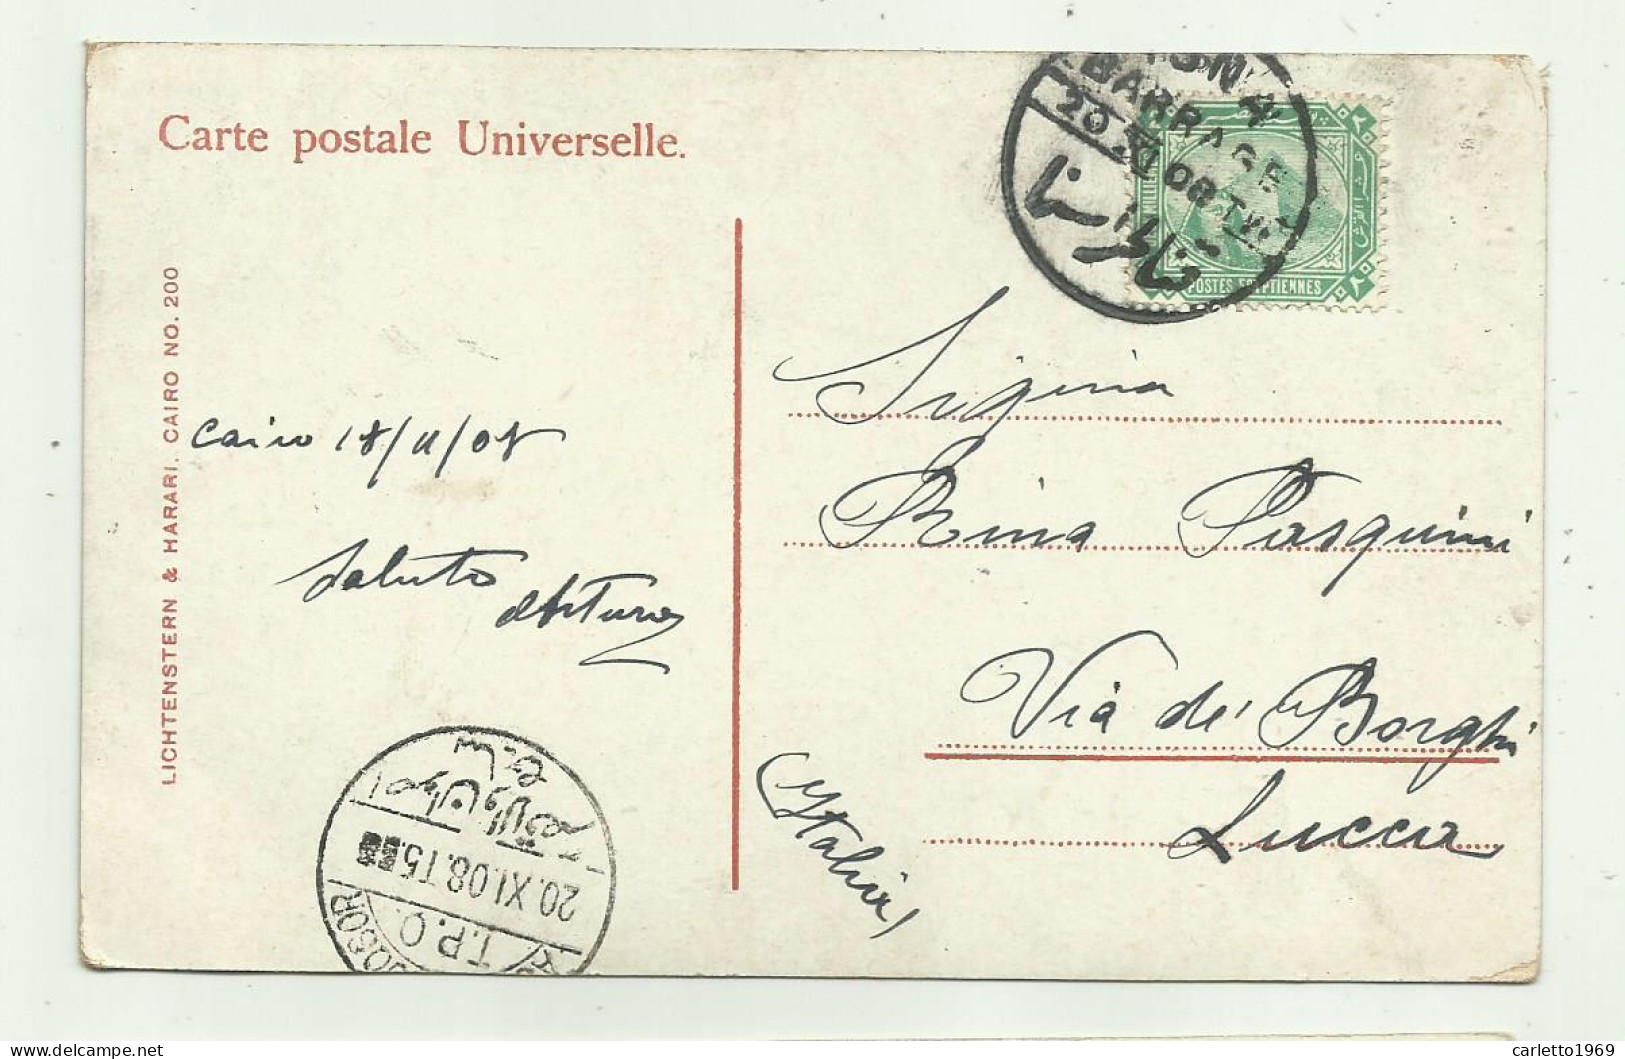 Carte postale Universelle.
LICHTENSTERN & HARARI. CAIRO NO. 200
Cairo 18/11/08
Saluto
d'Arturo
BARRAGE
20 XI 08 T
POSTES EGYPTIENNES
Sigina
Rina Pasquini
Via de' Borghi
Lucca
(Ytalia)
20.XI.08.T5.
T.P.O.
carletto1969